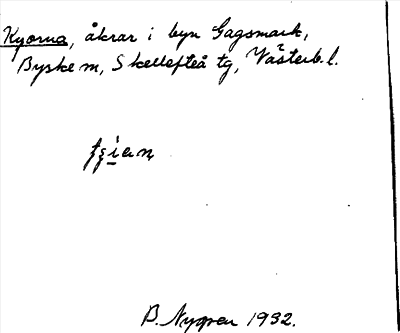 Kyorna, åkrar i byn Gagsmark,
Byske m, Skellefteå tg, Västerb.l.
B. Nygren 1932.